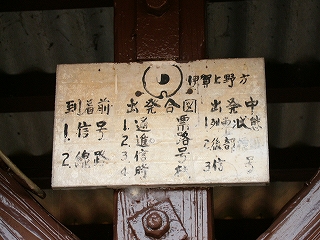 伊賀上野方
到着前
1. 信号
2. 線路
出発合図
1. 通票
2. 進路
3. 信号
4. 時
出発中
1. 状態
2. 後部
3. 信号